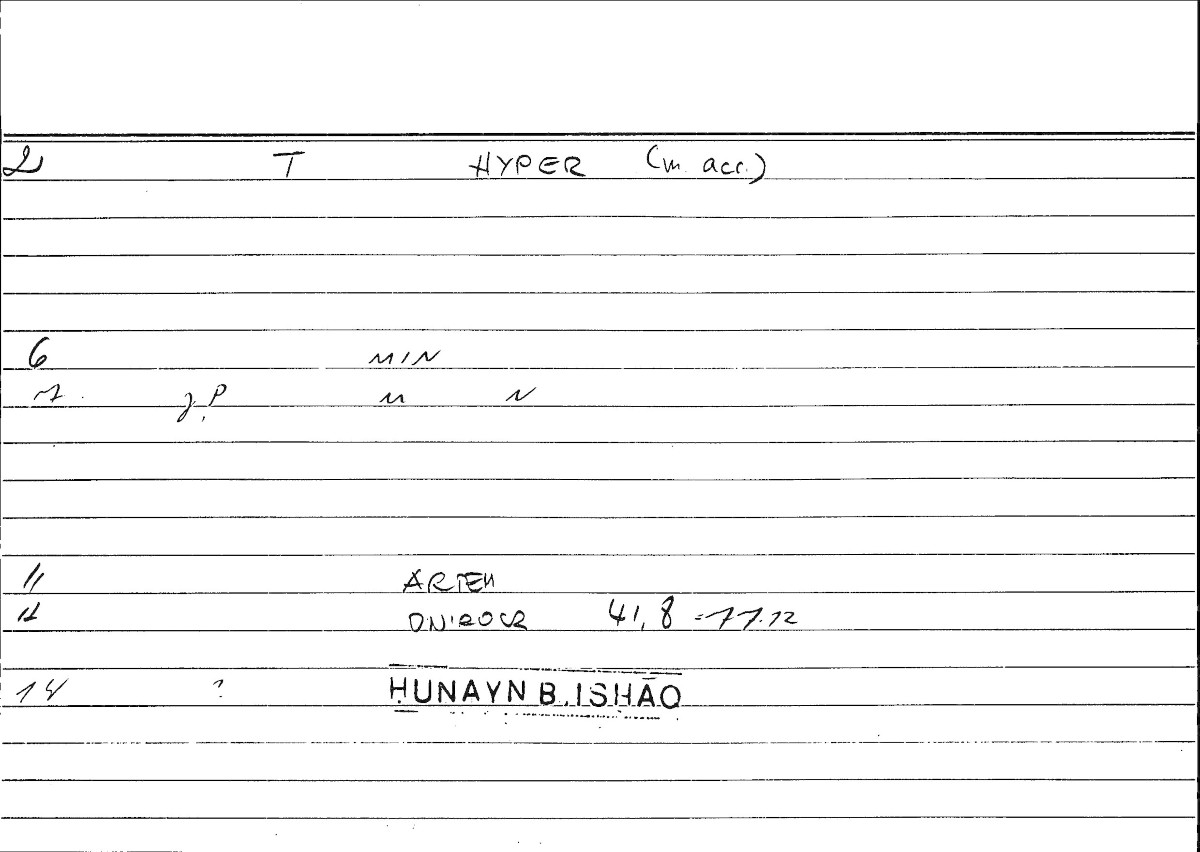 2 T HYPER (m. acc.)
6 MIN
7 g.P M N
11 ARTEM
12 ONIROCR 41,8 = 77.12
14 ? ḤUNAYN B. ISHĀQ